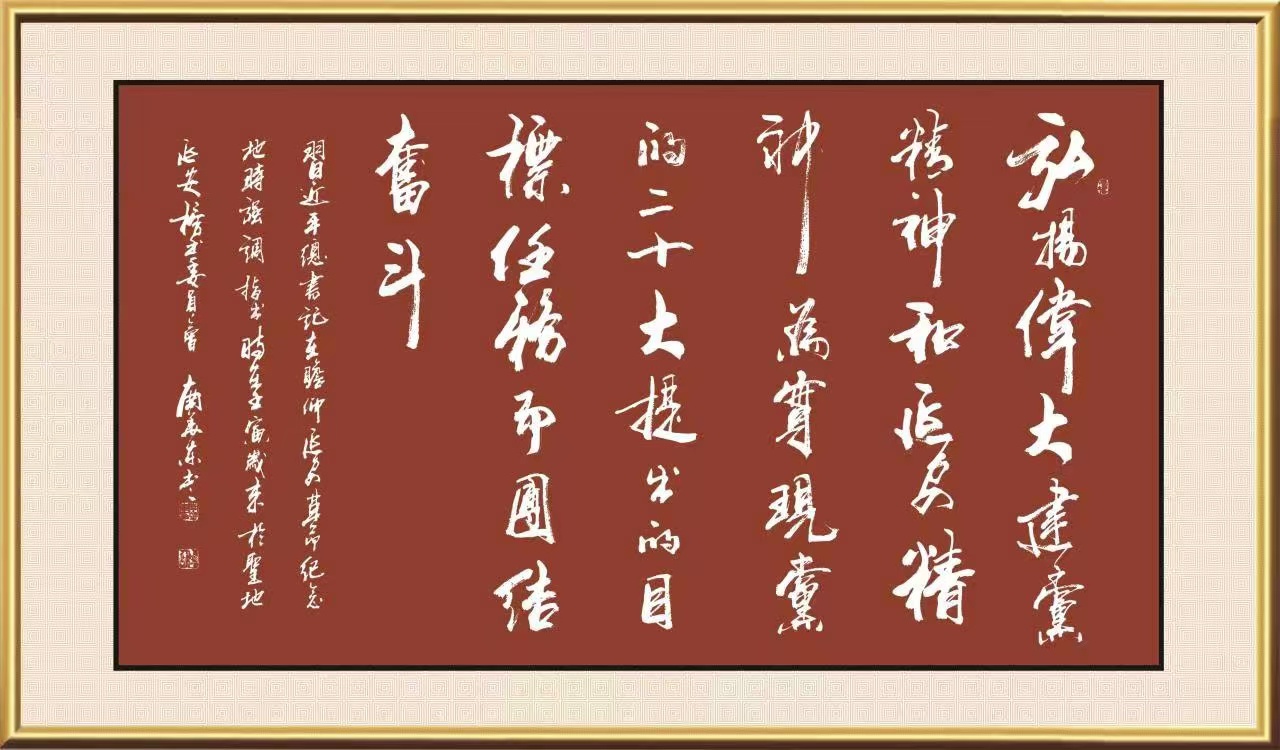 弘揚偉大建黨
精神和延安精
神為實現黨
的二十大提出的目
標任務而團结
奮斗
習近平總書記在瞻仰延安革命纪念
地時强調指出時在壬寅歲末於聖地
延安榜书委員會